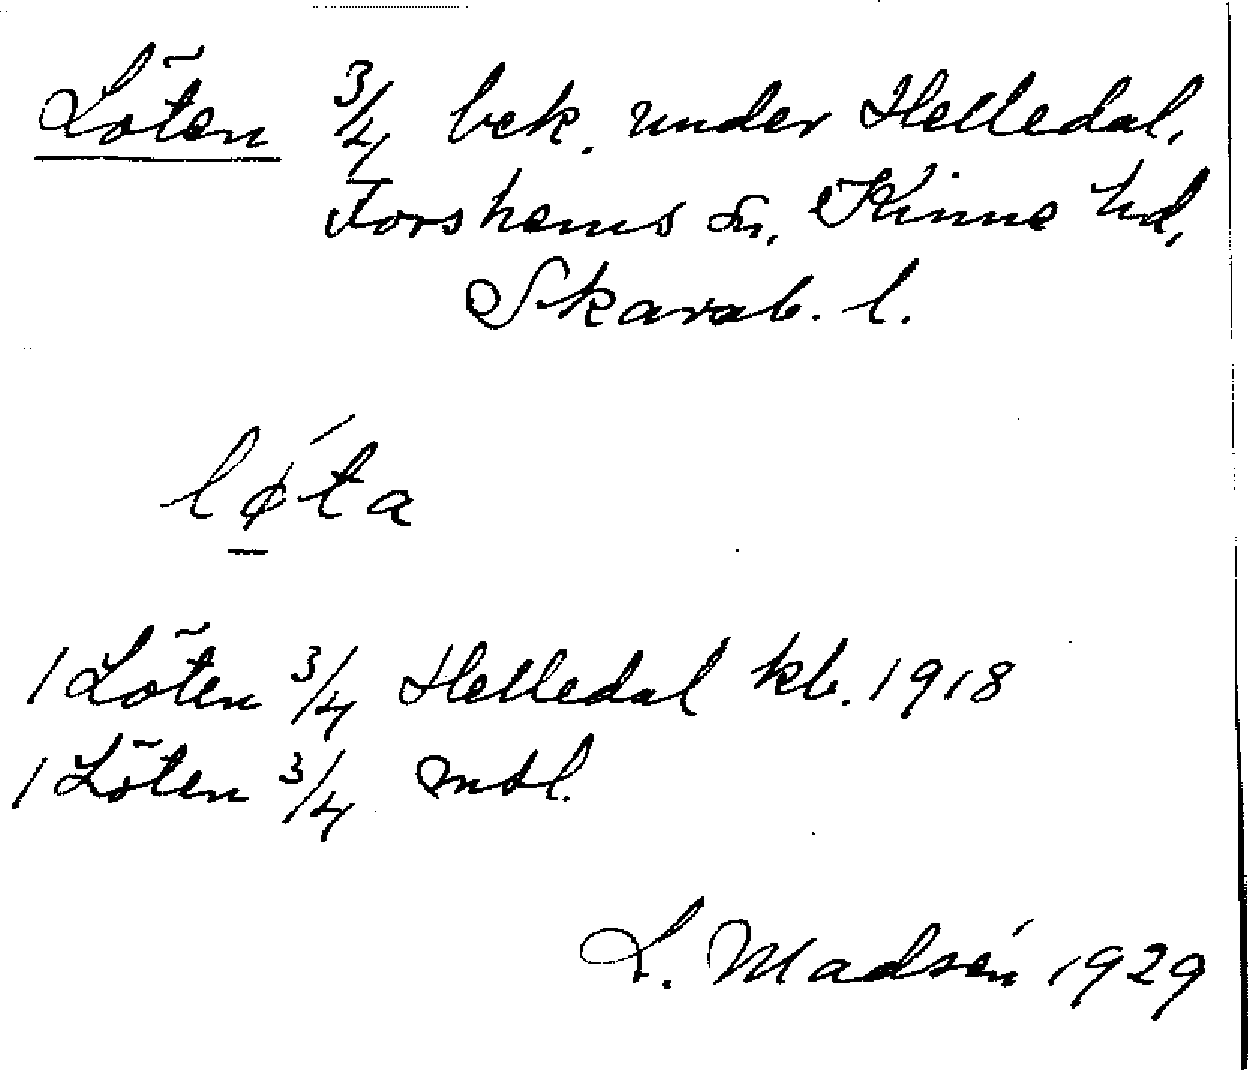 Löten 3/4 bek. under Helledal,
Forshems sn, Kinne hd,
Skarab. l.
lø´ta
1 Löten 3/4 Helledal kb. 1918
1 Löten 3/4 mtl.
L. Madsén 1929